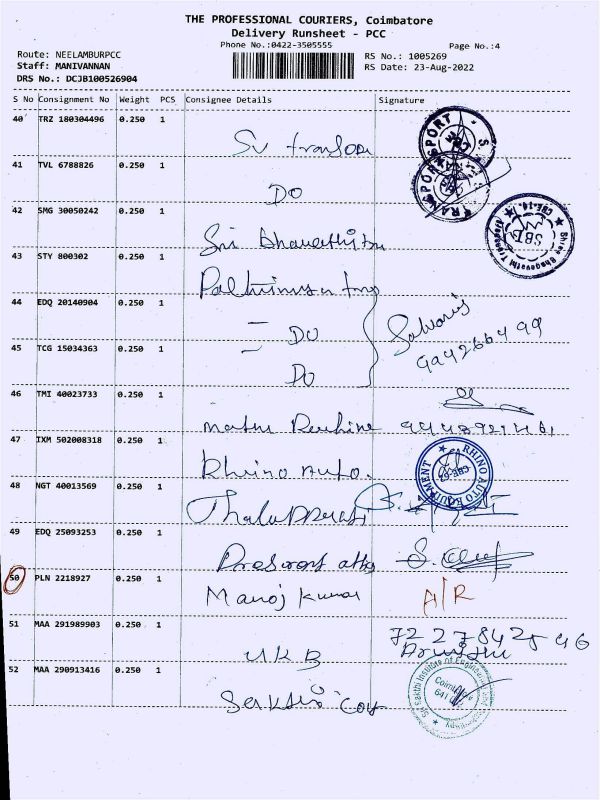 THE PROFESSIONAL COURIERS, Coimbatore
Delivery Runsheet - PCC
Phone No.:0422-3505555
Page No.:4
Route: NEELAMBURPCC
Staff: MANIVANNAN
DRS No.: DCJB100526904
RS No.: 1005269
RS Date: 23-Aug-2022
S No Consignment No Weight PCS Consignee Details Signature
40 TRZ 180304496 0.250 1
SV
TRANSPORT
41 TVL 6788826 0.250 1
DO
TRANSPORT
42 SMG 30050242 0.250 1
Sri
SBT
43 STY 800302 0.250 1
44 EDQ 20140904 0.250 1
DO
45 TCG 15034363 0.250 1
DO
46 TMI 40023733 0.250 1
47 IXM 502008318 0.250 1
Rhino Auto.
RHINO AUTO EQUIPMENT
48 NGT 40013569 0.250 1
49 EDQ 25093253 0.250 1
50 PLN 2218927 0.250 1
Manoj Kumar A/R
51 MAA 291989903 0.250 1
UKB
52 MAA 290913416 0.250 1
Sri Sakthi Institute of Engineering